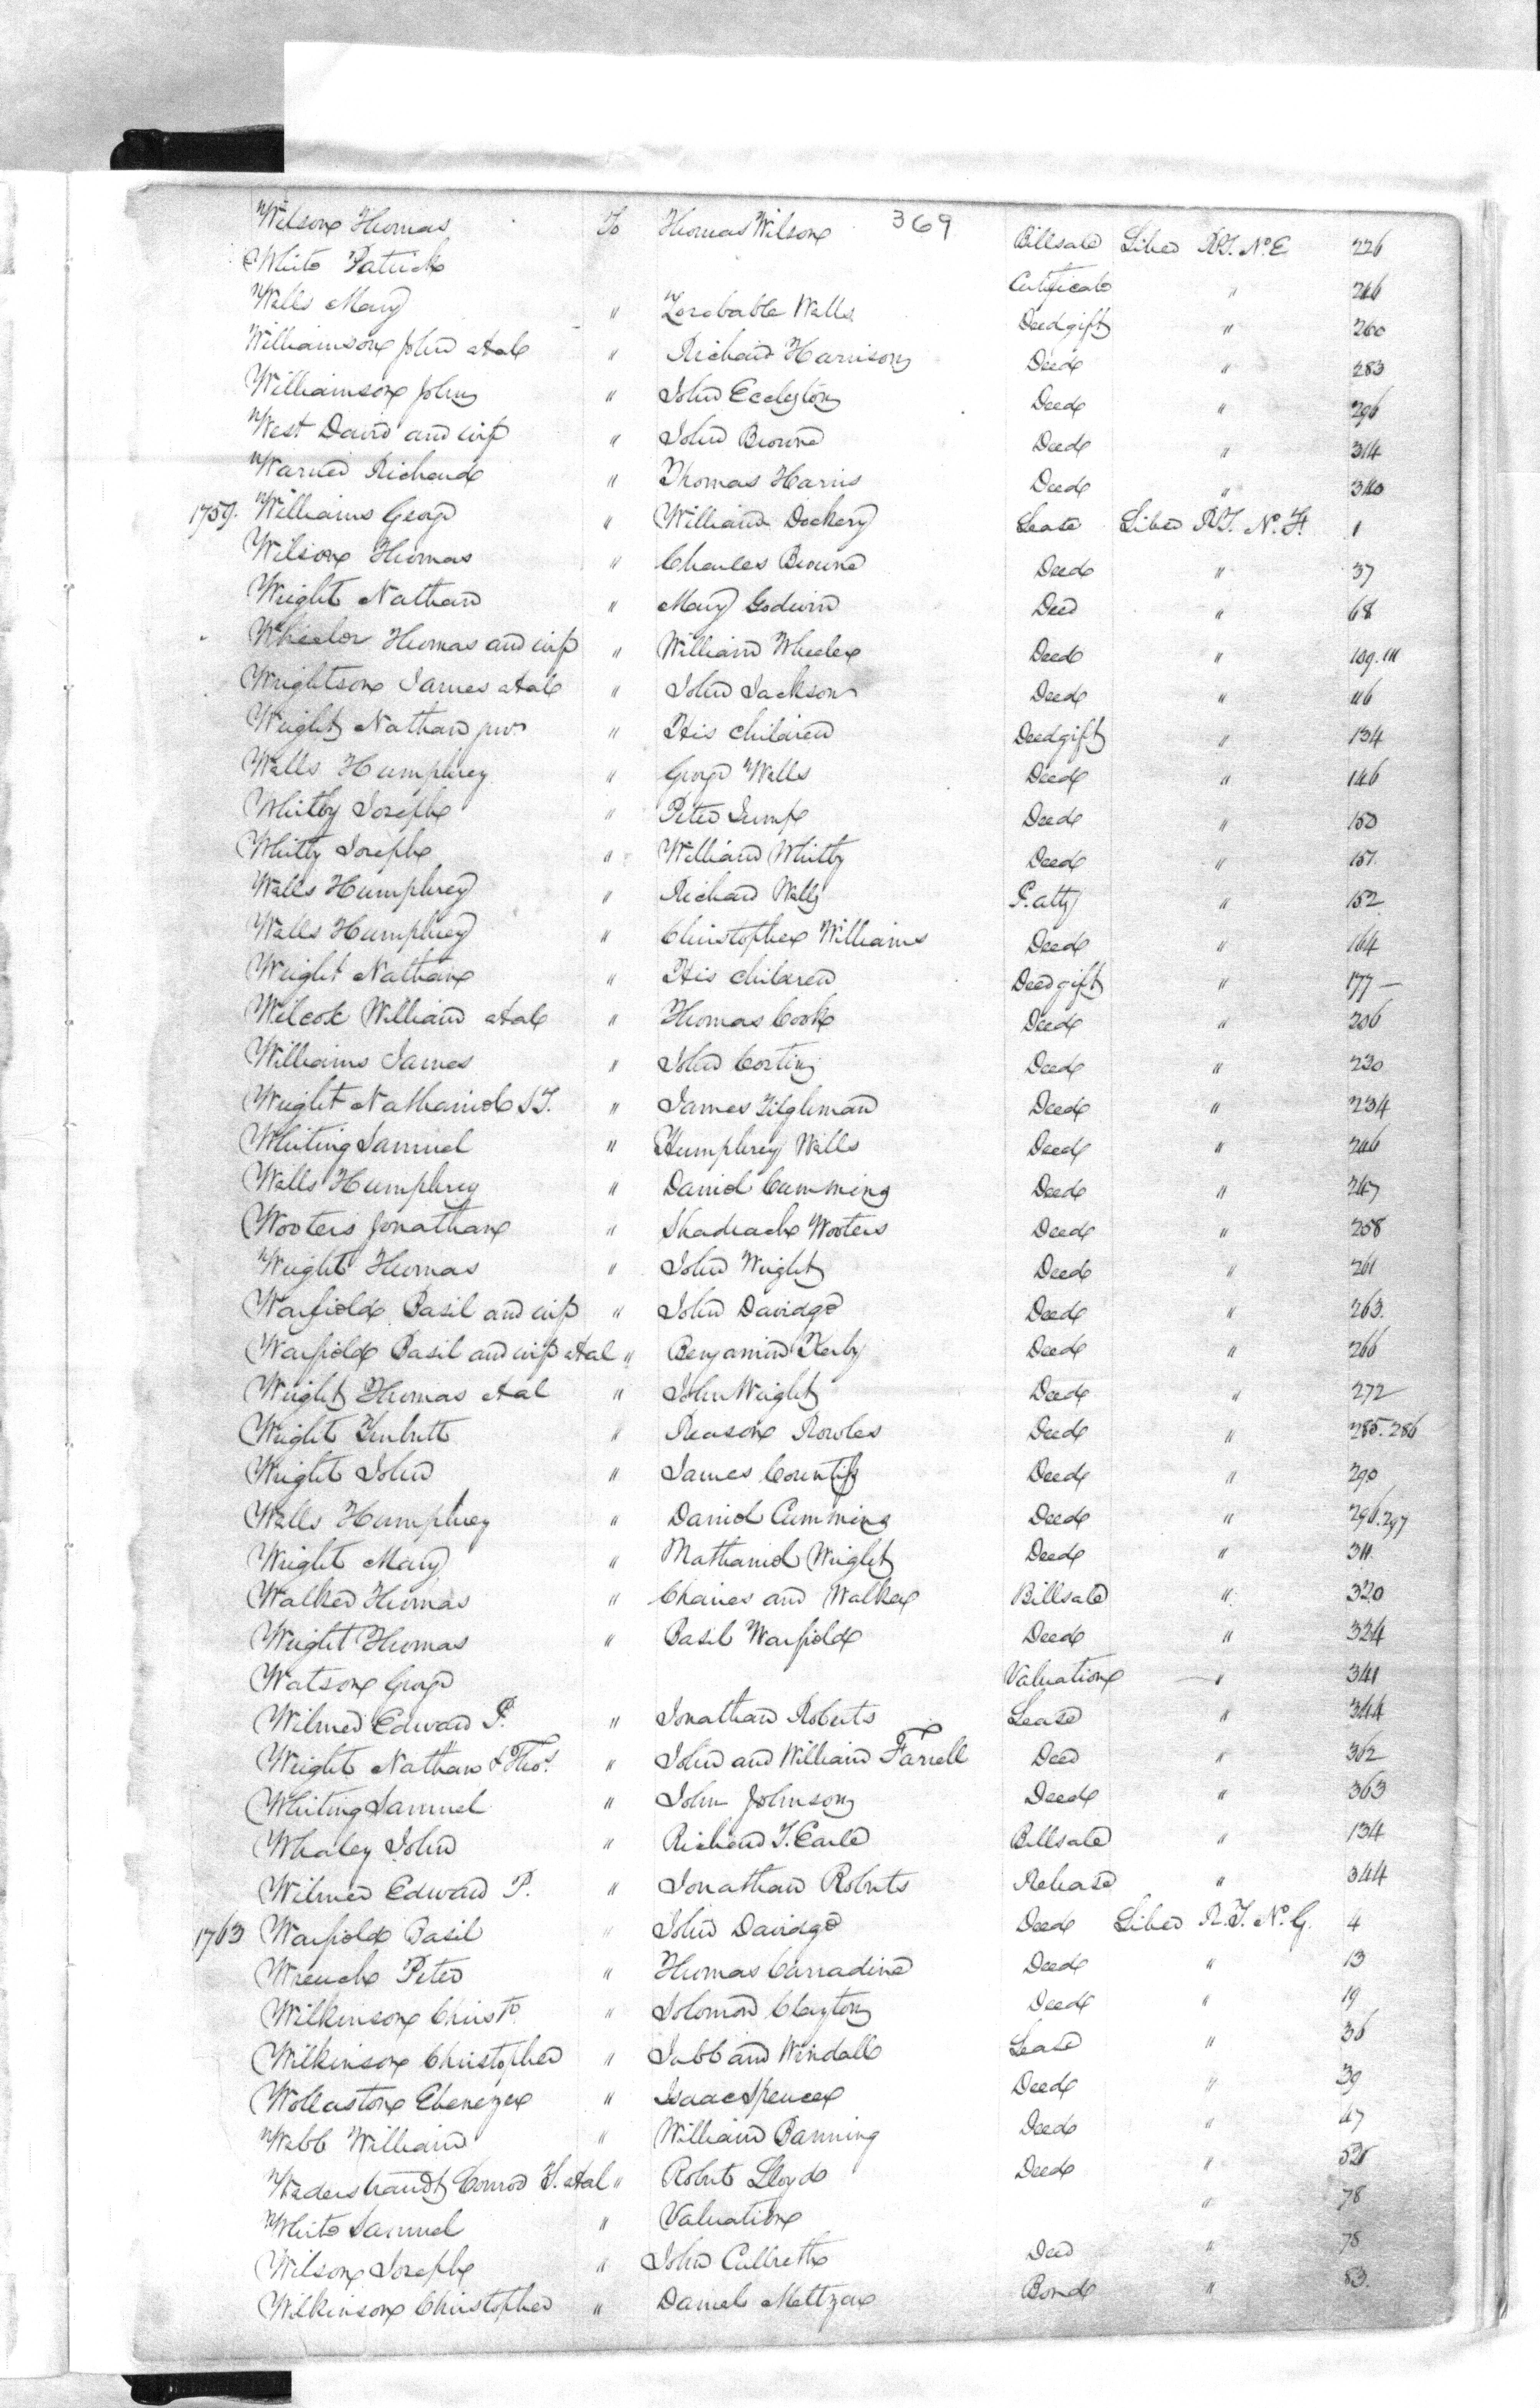 369
Wilson Thomas To Thomas Wilson Billsale Liber RT. No. E 226
White Patrick Certificate " 246
Walls Mary " Zorobable Walls Deedgift " 260
Williamson John etal " Richard Harrison Deed " 283
Williamson John " John Eccleston Deed " 296
West David and wife " John Browne Deed " 314
Warner Richard " Thomas Harris Deed " 340
1759. Williams George " William Dockery Lease Liber RT. No. F. 1
Wilson Thomas " Charles Browne Deed " 37
Wright Nathan " Mary Godwin Deed " 68
Wheeler Thomas and wife " William Wheeler Deed " 109.111
Wrightson James etal " John Jackson Deed " 116
Wright Nathan junr " His children Deedgift " 134
Walls Humphrey " George Walls Deed " 146
Whitby Joseph " Peter Jump Deed " 150
Whitby Joseph " William Whitby Deed " 151.
Walls Humphrey " Richard Walls P. atty " 152
Walls Humphrey " Christopher Williams Deed " 164
Wright Nathan " His children Deedgift " 177 —
Wilcox William etal " Thomas Cook Deed " 206
Williams James " John Costin Deed " 230
Wright Nathaniel S.T. " James Tilghman Deed " 234
Whiting Samuel " Humphrey Walls Deed " 246
Walls Humphrey " Daniel Cumming Deed " 247
Wooters Jonathan " Shadrach Wooters Deed " 258
Wright Thomas " John Wright Deed " 261
Warfield Basil and wife " John Davidge Deed " 263.
Warfield Basil and wife etal " Benjamin Kerby Deed " 266
Wright Thomas etal " John Wright Deed " 272
Wright Turbutt " Reason Rowles Deed " 285.286
Wright John " James Countiss Deed " 290
Walls Humphrey " Daniel Cumming Deed " 296.297
Wright Mary " Nathaniel Wright Deed " 311.
Walker Thomas " Chaires and Walker Billsale " 320
Wright Thomas " Basil Warfield Deed " 324
Watson George Valuation " 341
Wilmer Edward P. " Jonathan Roberts Lease " 344
Wright Nathan & Thos. " John and William Farrell Deed " 362
Whiting Samuel " John Johnson Deed " 363
Whaley John " Richard T. Earle Billsale " 134
Wilmer Edward P. " Jonathan Roberts Release " 344
1763 Warfield Basil " John Davidge Deed Liber R.T. No. G. 4
Wrench Peter " Thomas Carradine Deed " 13
Wilkinson Christr. " Solomon Clayton Deed " 19
Wilkinson Christopher " Jubb and Windall Lease " 36
Wollaston Ebenezer " Isaac Spencer Deed " 39
Webb William " William Banning Deed " 47
Wederstrandt Conrod T. etal " Robert Lloyd Deed " 
White Samuel " Valuation " 78
Wilson Joseph " John Culbreth Deed " 78
Wilkinson Christopher " Daniel Meltzer Bond " 83.